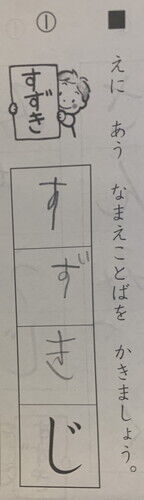 ■ えに あう なまえことばを かきましょう。
①
すずき
すずきじ